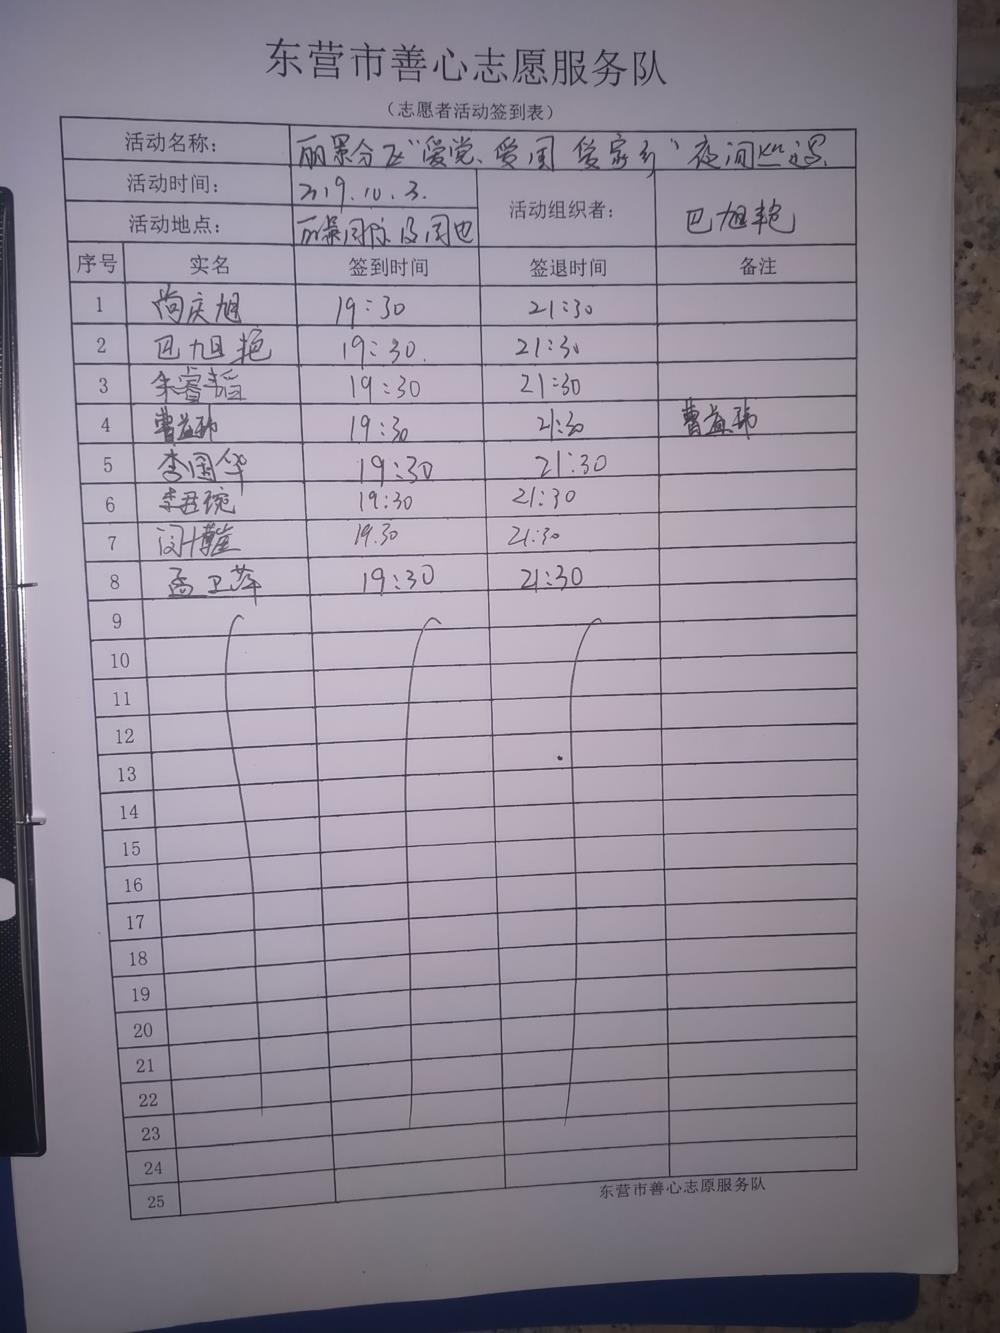 东营市善心志愿服务队
（志愿者活动签到表）
活动名称： 丽景分队"爱党、爱国 爱家乡"夜间巡逻
活动时间： 2019.10.3. 活动组织者： 巴旭艳
活动地点： 丽景国际及周边
序号 实名 签到时间 签退时间 备注
1 尚庆旭 19:30 21:30
2 巴旭艳 19:30. 21:30
3 19:30 21:30
4 曹益玮 19:30 21:30 曹益玮
5 李国华 19:30 21:30
6 李君琬 19:30 21:30
7 19.30 21:30
8 孟卫萍 19:30 21:30
9
10
11
12
13
14
15
16
17
18
19
20
21
22
23
24
25
东营市善心志原服务队